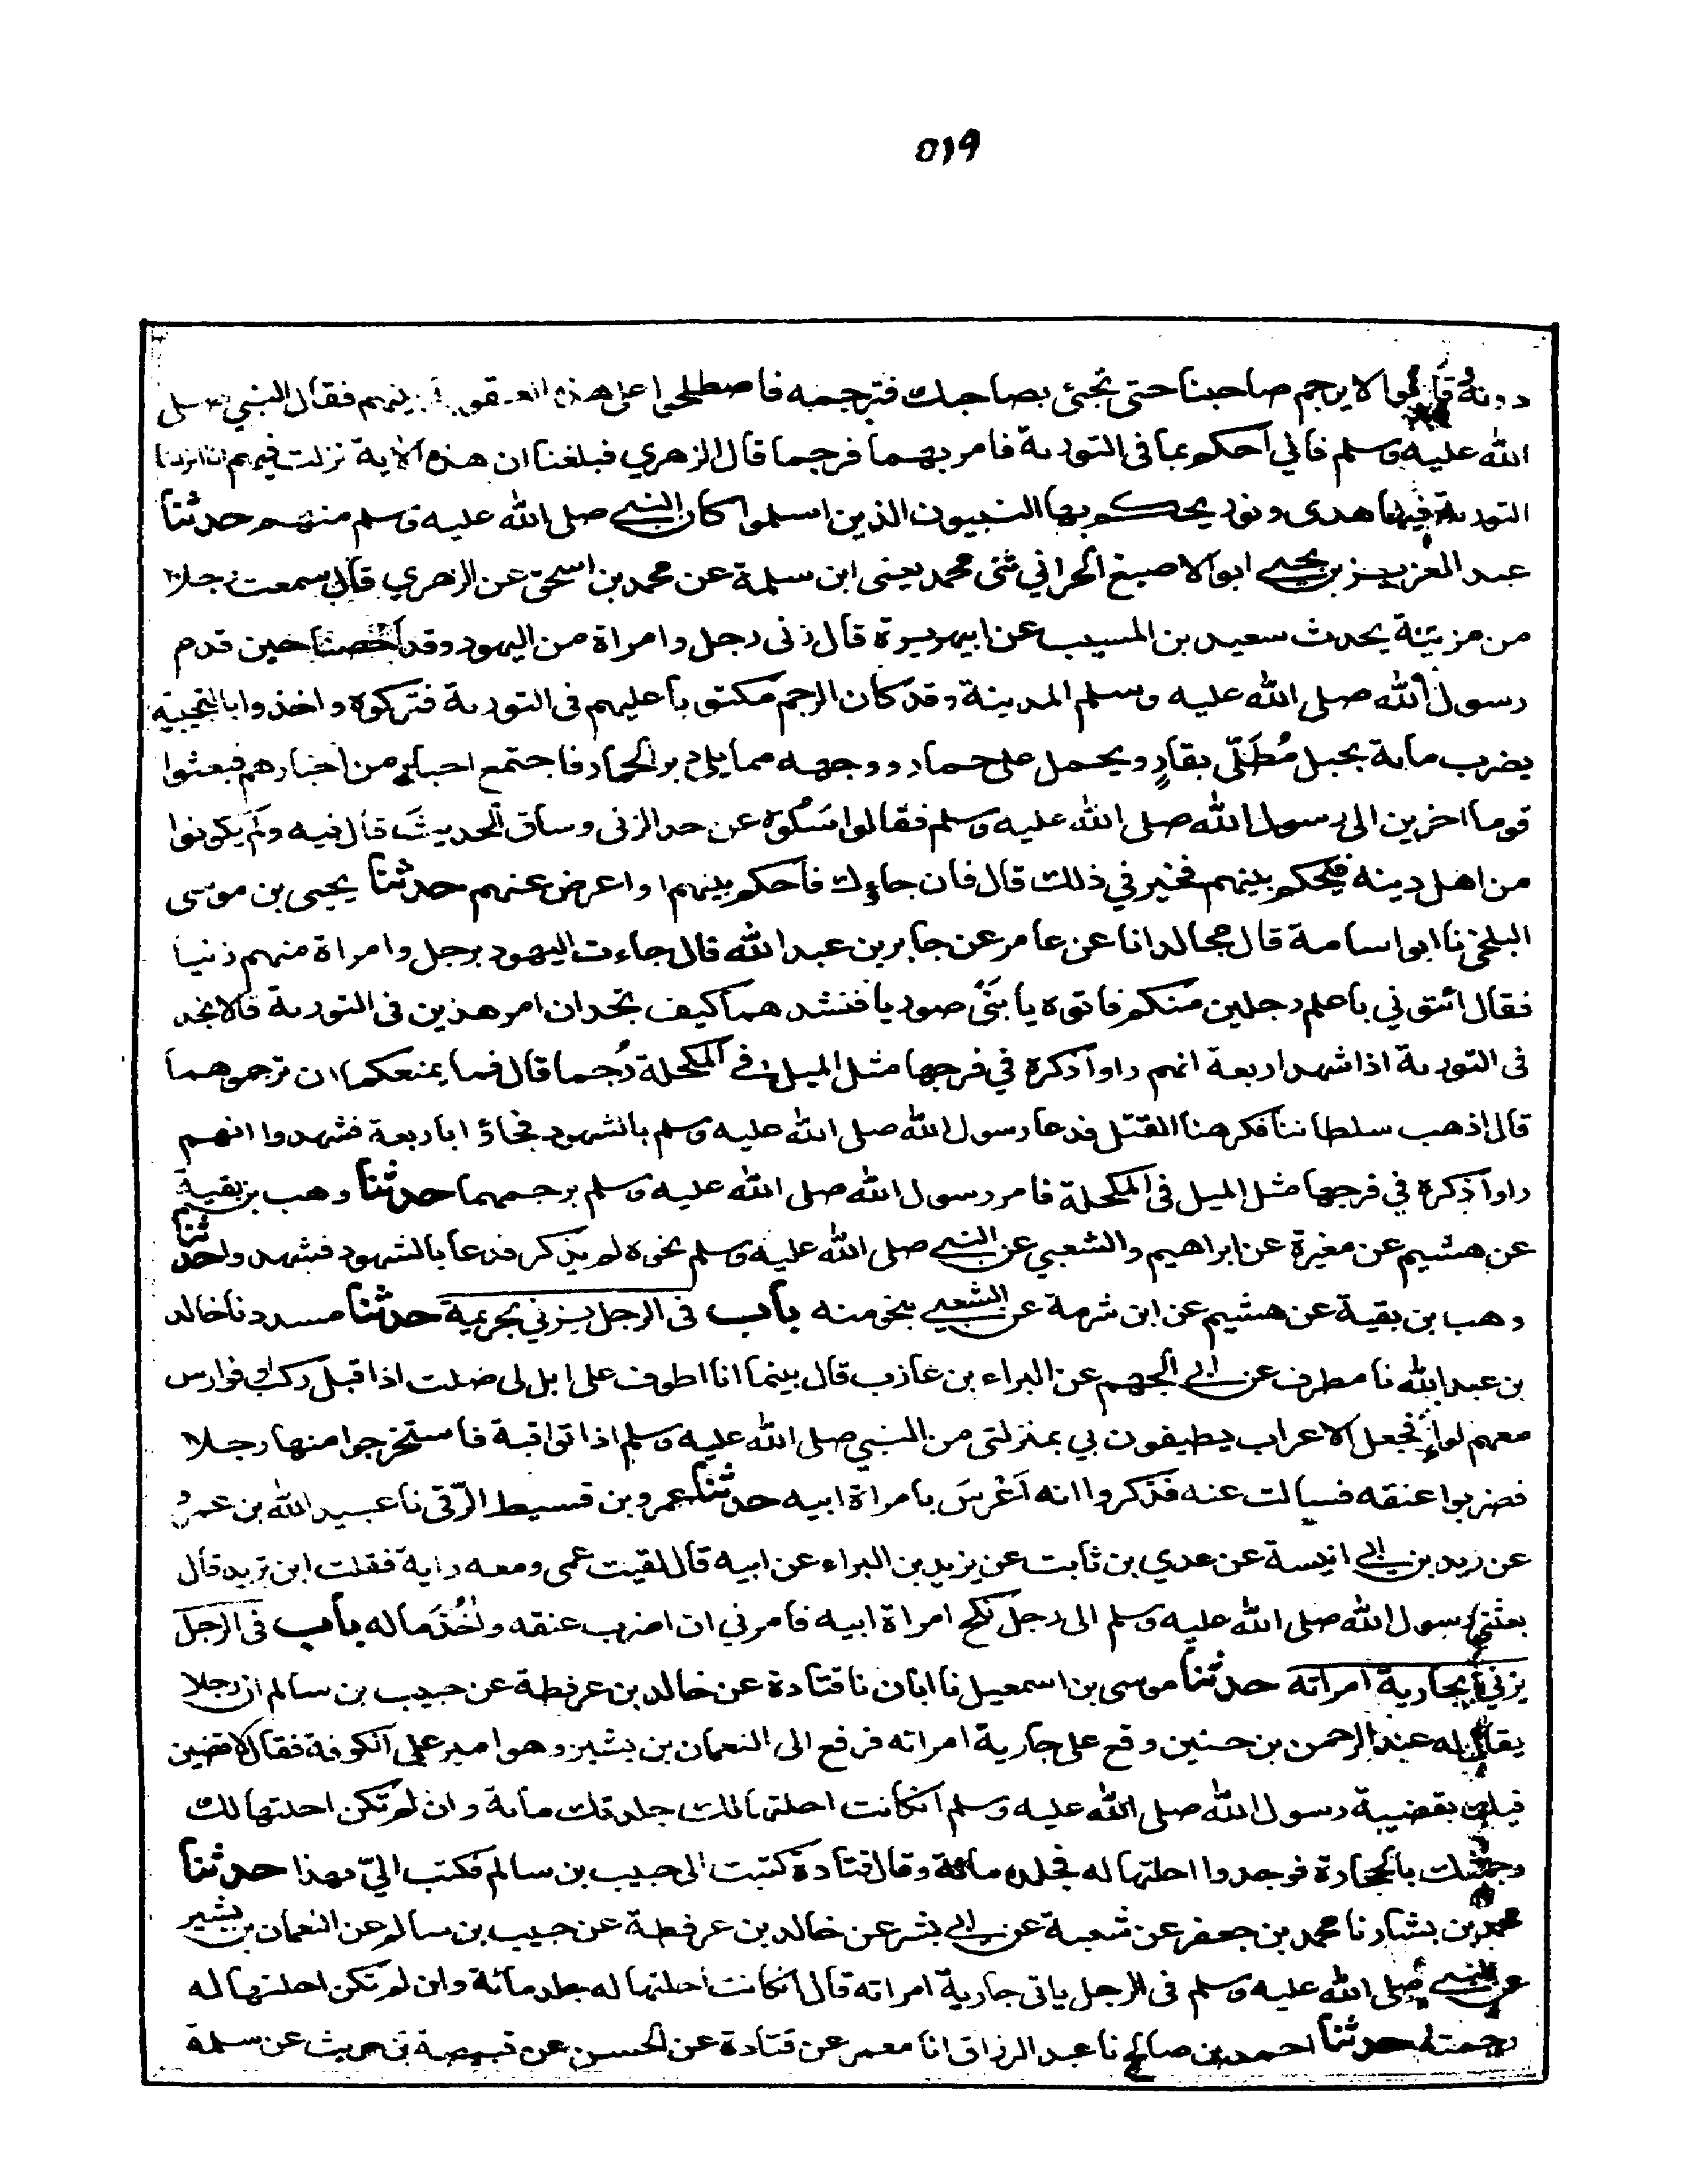 ٥١٩
دونه قالوا لا يرجم صاحبنا حتى تجئ بصاحبك فترجمه فاصطلحوا على هذه العقوبة بينهم فقال النبي صلى
الله عليه وسلم فاني احكم بما في التورىة فامر بهما فرجما قال الزهري فبلغنا ان هذه الاية نزلت فيهم انا انزلنا
التورىة فيها هدى ونور يحكم بها النبيون الذين اسلموا كان النبي صلى الله عليه وسلم منهم حدثنا
عبد العزيز بن يحيى ابو الاصبغ الحراني ثنى محمد يعنى ابن سلمة عن محمد بن اسحق عن الزهري قال سمعت رجلا
من مزينة يحدث سعيد بن المسيب عن ابيهريرة قال زنى رجل وامراة من اليهود وقد احصنا حين قدم
رسول الله صلى الله عليه وسلم المدينة وقد كان الرجم مكتوبا عليهم في التورىة فتركوه واخذوا بالتجبية
يضرب ماىة بحبل مُطَلّى بقارٍ ويحمل على حمار ووجهه مما يلي دبر الحمار فاجتمع احبار من احبارهم فبعثوا
قوما اخرين الى رسول الله صلى الله عليه وسلم فقالوا سَلُوه عن حد الزنى وساق الحديثَ قال فيه ولم يكونوا
من اهل دينه فيحكم بينهم فخير في ذلك قال فان جاءوك فاحكم بينهم او اعرض عنهم حدثنا يحيى بن موسى
البلخي نا ابو اسامة قال مجالد انا عن عامر عن جابر بن عبد الله قال جاءت اليهود برجل وامراة منهم زنيا
فقال ائتوني باعلم رجلين منكم فاتوه يابنَيْ صوريا فنشدهما كيف تجدان امر هذين في التورىة قالا نجد
في التورىة اذا شهد اربعة انهم راوا ذكره في فرجها مثل الميل في المكحلة رُجما قال فما يمنعكما ان ترجموهما
قالا ذهب سلطاننا فكرهنا القتل فدعا رسول الله صلى الله عليه وسلم بالشهود فجاؤا باربعة فشهدوا انهم
راوا ذكره في فرجها مثل الميل في المكحلة فامر رسول الله صلى الله عليه وسلم برجمهما حدثنا وهب بن بقية
عن هشيم عن مغيرة عن ابراهيم والشعبي عن النبي صلى الله عليه وسلم نحوه لم يذكر فدعا بالشهود فشهدوا حدثنا
وهب بن بقية عن هشيم عن ابن شبرمة عن الشعبي بنحو منه باب في الرجل يزني بحريمه حدثنا مسدد نا خالد
بن عبد الله نا مطرف عن ابي الجهم عن البراء بن عازب قال بينما انا اطوف على ابل لى ضلت اذ اقبل ركب او فوارس
معهم لواء فجعل الاعراب يطيفون بي بمنزلتى من النبي صلى الله عليه وسلم اذ اتوا قبة فاستخرجوا منها رجلا
فضربوا عنقه فسالت عنه فذكروا انه اَعْرَسَ بامراة ابيه حدثنا عمرو بن قسيط الرّقى نا عبيد الله بن عمرو
عن زيد بن ابي انيسة عن عدي بن ثابت عن يزيد بن البراء عن ابيه قال لقيت عمى ومعه راية فقلت اين تريد قال
بعثني رسول الله صلى الله عليه وسلم الى رجل نكح امراة ابيه فامرني ان اضرب عنقه واٰخُذَ ماله باب في الرجل
يزني بجارية امراته حدثنا موسى بن اسمعيل نا ابان نا قتادة عن خالد بن عرفطة عن حبيب بن سالم ان رجلا
يقال له عبد الرحمن بن حنين وقع على جارية امراته فرفع الى النعمان بن بشير وهو امير على الكوفة فقال لاقضين
فيك بقضية رسول الله صلى الله عليه وسلم ان كانت احلتها لك جلدتك ماىة وان لم تكن احلتها لك
رجمتك بالحجارة فوجدوا احلتها له فجلده مائة وقال قتادة كتبت الى حبيب بن سالم فكتب اليّ بهذا حدثنا
محمد بن بشار نا محمد بن جعفر عن شعبة عن ابي بشر عن خالد بن عرفطة عن حبيب بن سالم عن النعمان بن بشير
عن النبي صلى الله عليه وسلم في الرجل ياتى جارية امراته قال ان كانت احلتها له جلد مائة وان لم تكن احلتها له
رجمته حدثنا احمد بن صالح نا عبد الرزاق انا معمر عن قتادة عن الحسن عن قبيصة بن حريث عن سلمة